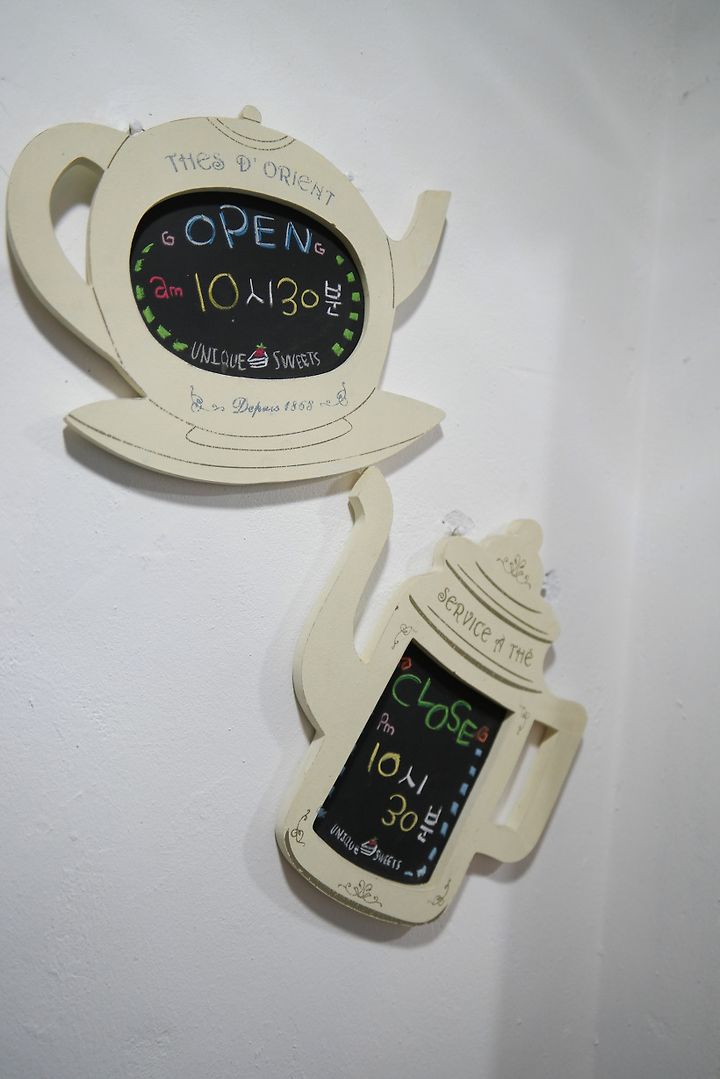 THES D'ORIENT
G OPEN G
am 10시30분
UNIQUE SWEETS
Depuis 1868
SERVICE A THÉ
G CLOSE G
Pm
10시
30분
UNIQUE SWEETS